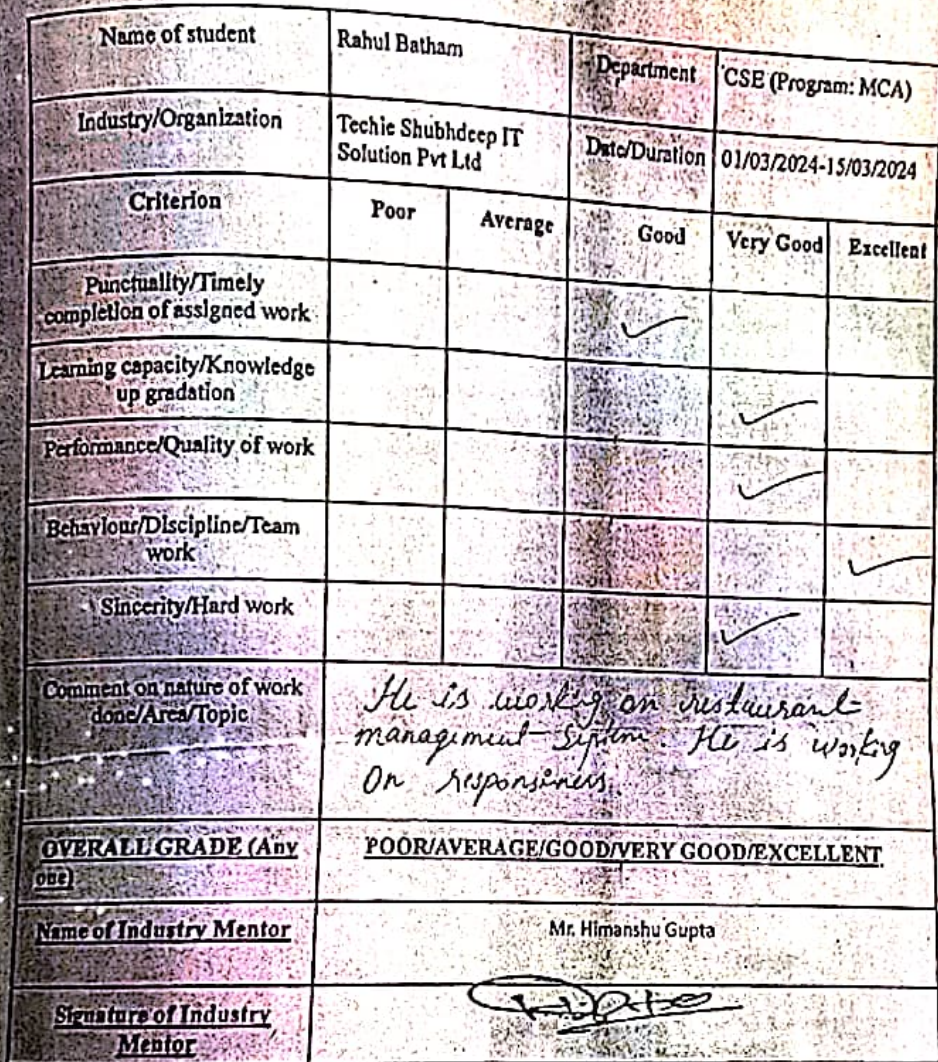 Name of student Rahul Batham Department CSE (Program: MCA)
Industry/Organization Techie Shubhdeep IT Date/Duration 01/03/2024-15/03/2024
Solution Pvt Ltd
Criterion Poor Average Good Very Good Excellent
Punctuality/Timely
completion of assigned work ✓
Learning capacity/Knowledge
up gradation ✓
Performance/Quality of work ✓
Behaviour/Discipline/Team
work ✓
Sincerity/Hard work ✓
Comment on nature of work
done/Area/Topic
He is working on restaurant
management System. He is working
On
OVERALL GRADE (Any
one)
POOR/AVERAGE/GOOD/VERY GOOD/EXCELLENT
Name of Industry Mentor Mr. Himanshu Gupta
Signature of Industry
Mentor